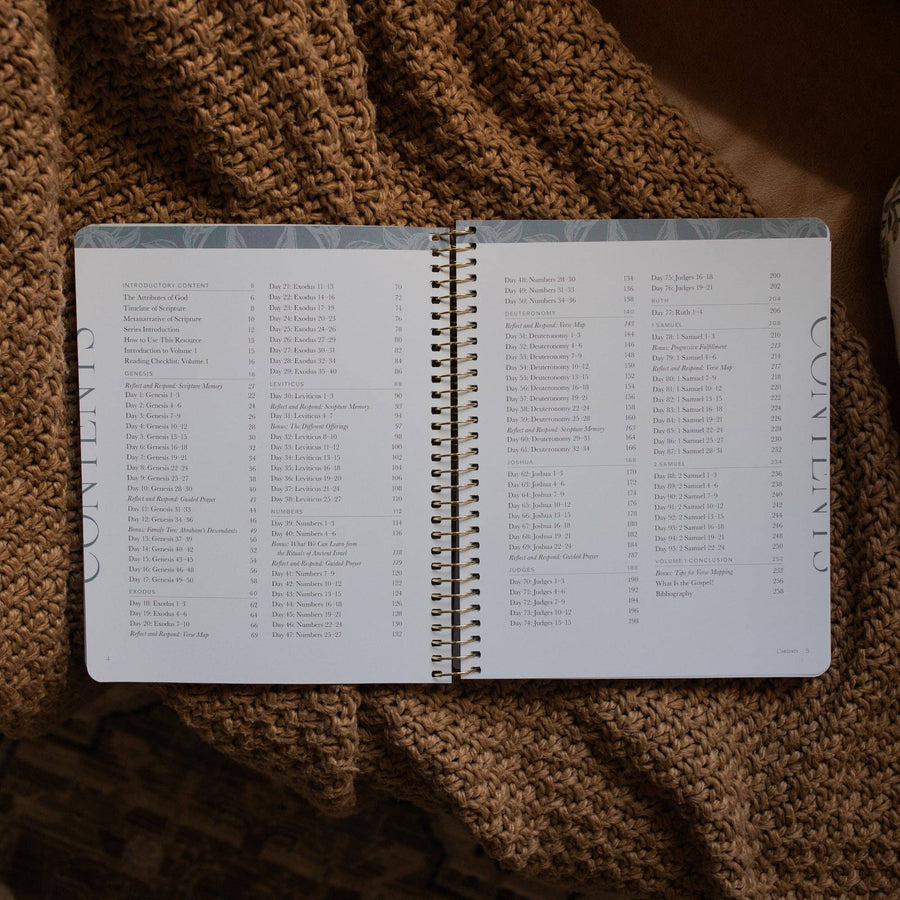 CONTENTS
INTRODUCTORY CONTENT 6
The Attributes of God 6
Timeline of Scripture 8
Metanarrative of Scripture 10
Series Introduction 12
How to Use This Resource 13
Introduction to Volume 1 15
Reading Checklist: Volume 1 16
GENESIS 18
Reflect and Respond: Scripture Memory 21
Day 1: Genesis 1–3 22
Day 2: Genesis 4–6 24
Day 3: Genesis 7–9 26
Day 4: Genesis 10–12 28
Day 5: Genesis 13–15 30
Day 6: Genesis 16–18 32
Day 7: Genesis 19–21 34
Day 8: Genesis 22–24 36
Day 9: Genesis 25–27 38
Day 10: Genesis 28–30 40
Reflect and Respond: Guided Prayer 43
Day 11: Genesis 31–33 44
Day 12: Genesis 34–36 46
Bonus: Family Tree: Abraham's Descendants 49
Day 13: Genesis 37–39 50
Day 14: Genesis 40–42 52
Day 15: Genesis 43–45 54
Day 16: Genesis 46–48 56
Day 17: Genesis 49–50 58
EXODUS 60
Day 18: Exodus 1–3 62
Day 19: Exodus 4–6 64
Day 20: Exodus 7–10 66
Reflect and Respond: Verse Map 69
Day 21: Exodus 11–13 70
Day 22: Exodus 14–16 72
Day 23: Exodus 17–19 74
Day 24: Exodus 20–23 76
Day 25: Exodus 24–26 78
Day 26: Exodus 27–29 80
Day 27: Exodus 30–31 82
Day 28: Exodus 32–34 84
Day 29: Exodus 35–40 86
LEVITICUS 88
Day 30: Leviticus 1–3 90
Reflect and Respond: Scripture Memory 93
Day 31: Leviticus 4–7 94
Bonus: The Different Offerings 97
Day 32: Leviticus 8–10 98
Day 33: Leviticus 11–12 100
Day 34: Leviticus 13–15 102
Day 35: Leviticus 16–18 104
Day 36: Leviticus 19–20 106
Day 37: Leviticus 21–24 108
Day 38: Leviticus 25–27 110
NUMBERS 112
Day 39: Numbers 1–3 114
Day 40: Numbers 4–6 116
Bonus: What We Can Learn from
the Rituals of Ancient Israel 118
Reflect and Respond: Guided Prayer 119
Day 41: Numbers 7–9 120
Day 42: Numbers 10–12 122
Day 43: Numbers 13–15 124
Day 44: Numbers 16–18 126
Day 45: Numbers 19–21 128
Day 46: Numbers 22–24 130
Day 47: Numbers 25–27 132
4
Day 48: Numbers 28–30 134
Day 49: Numbers 31–33 136
Day 50: Numbers 34–36 138
DEUTERONOMY 140
Reflect and Respond: Verse Map 143
Day 51: Deuteronomy 1–3 144
Day 52: Deuteronomy 4–6 146
Day 53: Deuteronomy 7–9 148
Day 54: Deuteronomy 10–12 150
Day 55: Deuteronomy 13–15 152
Day 56: Deuteronomy 16–18 154
Day 57: Deuteronomy 19–21 156
Day 58: Deuteronomy 22–24 158
Day 59: Deuteronomy 25–28 160
Reflect and Respond: Scripture Memory 163
Day 60: Deuteronomy 29–31 164
Day 61: Deuteronomy 32–34 166
JOSHUA 168
Day 62: Joshua 1–3 170
Day 63: Joshua 4–6 172
Day 64: Joshua 7–9 174
Day 65: Joshua 10–12 176
Day 66: Joshua 13–15 178
Day 67: Joshua 16–18 180
Day 68: Joshua 19–21 182
Day 69: Joshua 22–24 184
Reflect and Respond: Guided Prayer 187
JUDGES 188
Day 70: Judges 1–3 190
Day 71: Judges 4–6 192
Day 72: Judges 7–9 194
Day 73: Judges 10–12 196
Day 74: Judges 13–15 198
Day 75: Judges 16–18 200
Day 76: Judges 19–21 202
RUTH 204
Day 77: Ruth 1–4 206
1 SAMUEL 208
Day 78: 1 Samuel 1–3 210
Bonus: Progressive Fulfillment 213
Day 79: 1 Samuel 4–6 214
Reflect and Respond: Verse Map 217
Day 80: 1 Samuel 7–9 218
Day 81: 1 Samuel 10–12 220
Day 82: 1 Samuel 13–15 222
Day 83: 1 Samuel 16–18 224
Day 84: 1 Samuel 19–21 226
Day 85: 1 Samuel 22–24 228
Day 86: 1 Samuel 25–27 230
Day 87: 1 Samuel 28–31 232
2 SAMUEL 234
Day 88: 2 Samuel 1–3 236
Day 89: 2 Samuel 4–6 238
Day 90: 2 Samuel 7–9 240
Day 91: 2 Samuel 10–12 242
Day 92: 2 Samuel 13–15 244
Day 93: 2 Samuel 16–18 246
Day 94: 2 Samuel 19–21 248
Day 95: 2 Samuel 22–24 250
VOLUME 1 CONCLUSION 252
Bonus: Tips for Verse Mapping 252
What Is the Gospel? 256
Bibliography 258
CONTENTS
Contents 5